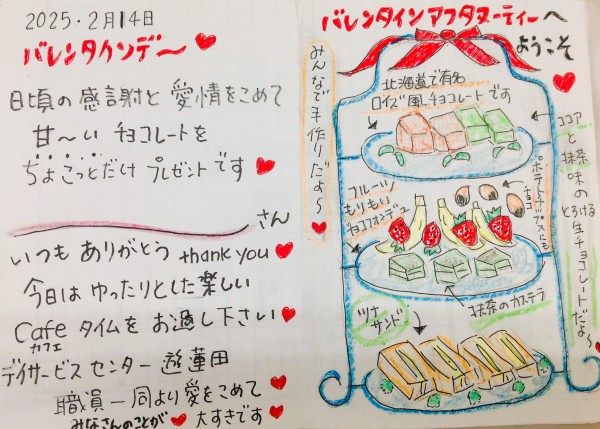 2025.2月14日
バレンタインデ〜
日頃の感謝と愛情をこめて
甘〜い チョコレートを
ちょこっとだけ プレゼントです
さん
いつも ありがとう thank you
今日は ゆったりとした楽しい
Cafe タイムを お過し下さい
カフェ
デイサービス センター 遊蓮田
職員一同より愛をこめて
みなさんのことが 大すきです
バレンタインアフタヌーンティーへ
ようこそ
みんなで手作りだよ〜
北海道で有名
ロイズ風チョコレートです
ココアと抹茶味の
とろける
生チョコレートだよ〜
フルーツ
もりもり
チョコフォンデュ
ポテトチップスにも
チョコ
抹茶のカステラ
ツナ
サンド